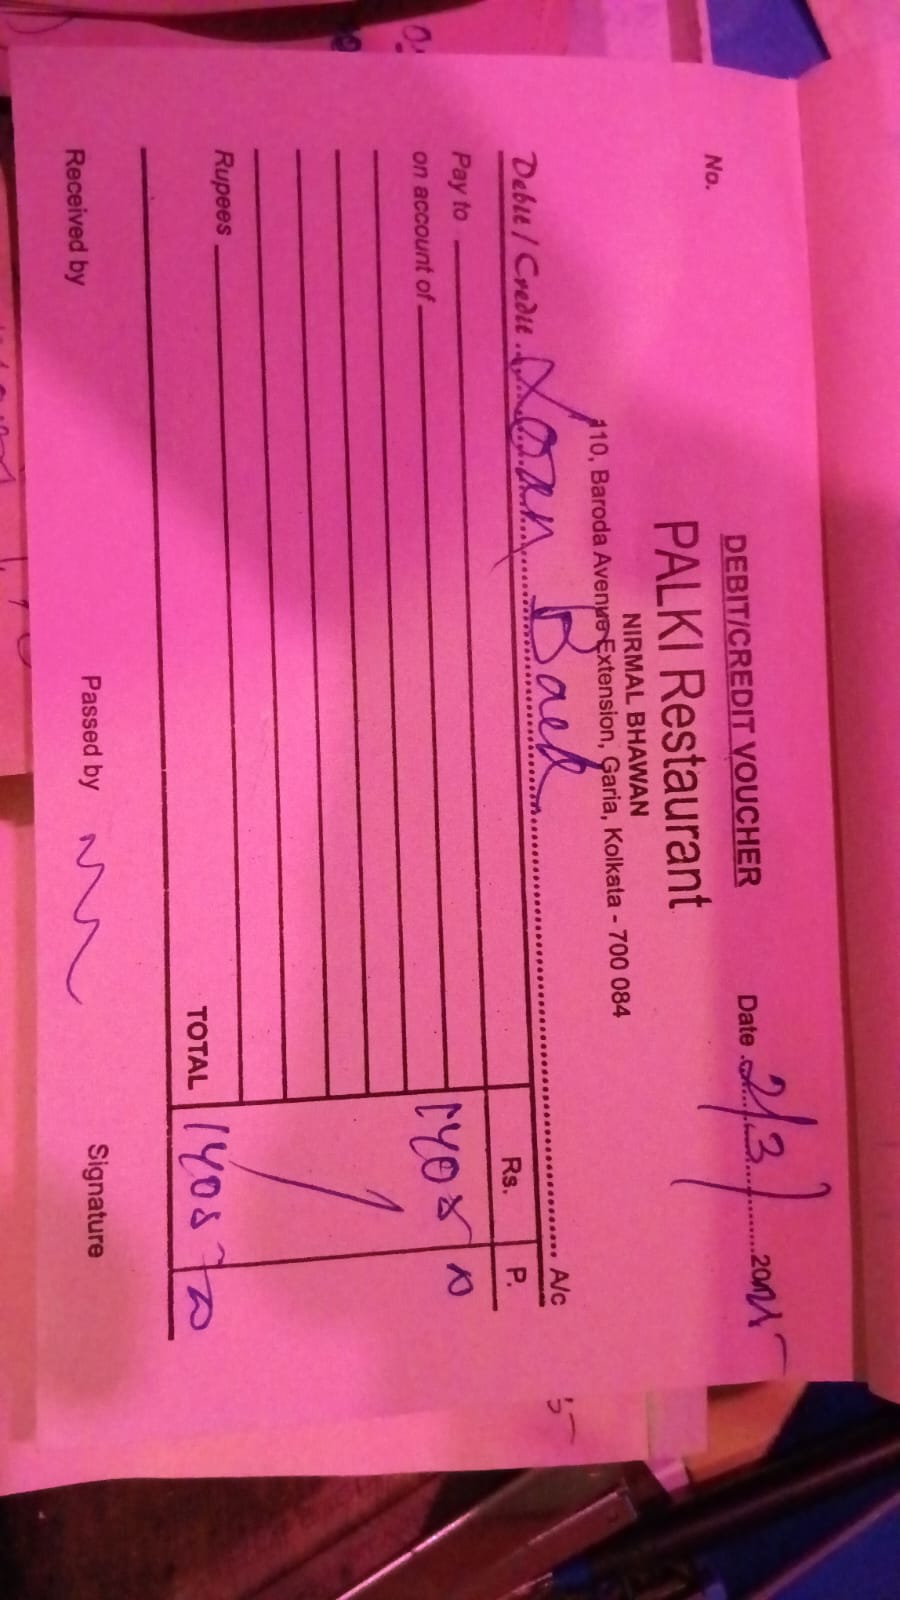 DEBIT/CREDIT VOUCHER
No.
Date 2/3 2025
PALKI Restaurant
NIRMAL BHAWAN
110, Baroda Avenue Extension, Garia, Kolkata - 700 084
Debit / Credit Loan Back A/c
Rs. P.
Pay to
on account of
Rupees
TOTAL
Received by Passed by Signature